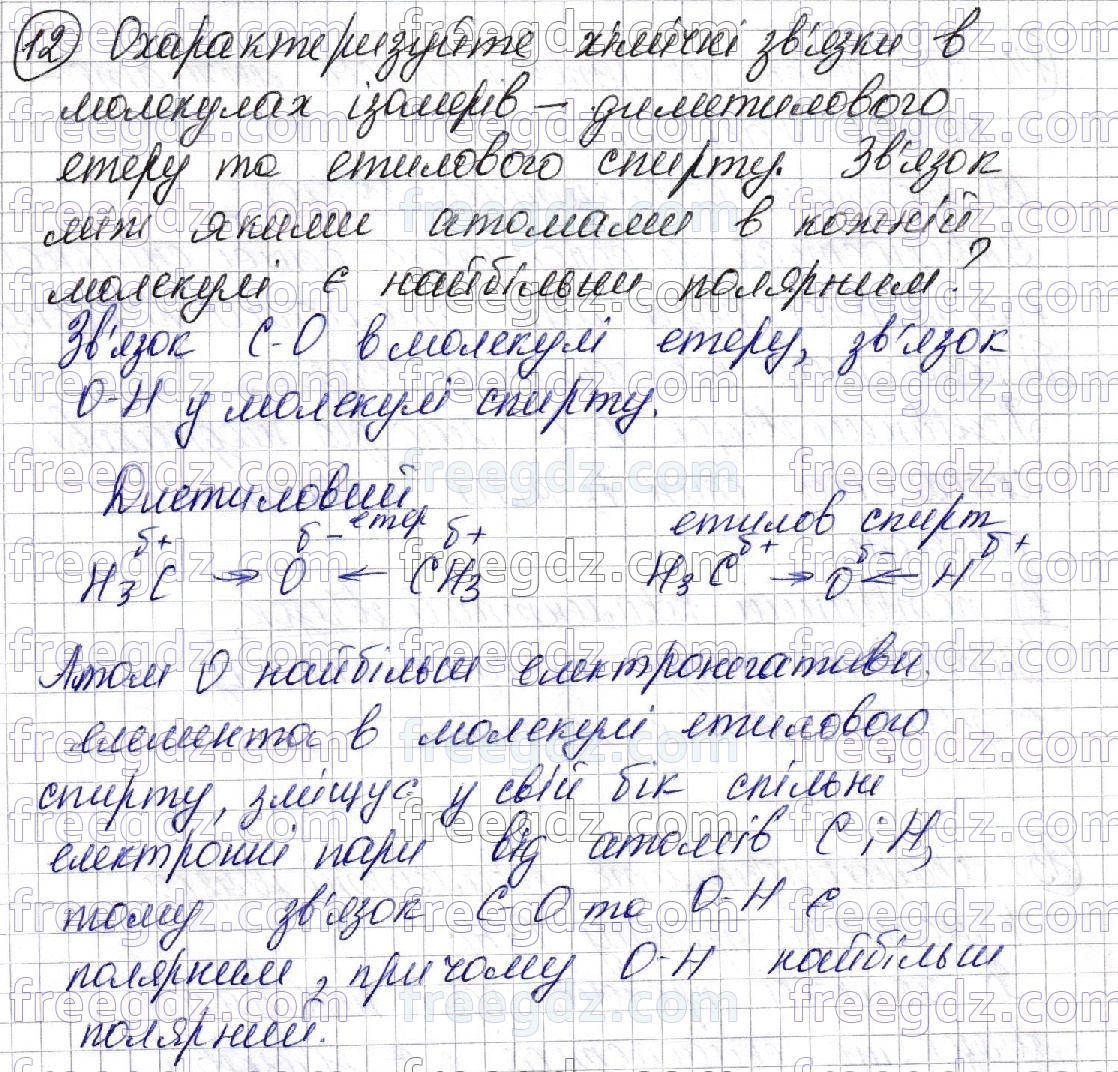 12 Охарактеризуйте хімічні зв'язки в
молекулах ізомерів – диметилового
етеру та етилового спирту. Зв'язок
між якими атомами в кожній
молекулі є найбільш полярним?
Зв'язок С-О в молекулі етеру, зв'язок
О-Н у молекулі спирту.
етер етилов спирт
δ+ δ– δ+ δ+ δ– δ+
H₃C → O ← CH₃ H₃C → O ← H
Атом О найбільш електронегативн.
елемента в молекулі етилового
спирту, зміщує у свій бік спільні
електронні пари від атомів С і Н,
тому зв'язок С-О та О-Н є
полярним, причому О-Н найбільш
полярний.
freegdz.com